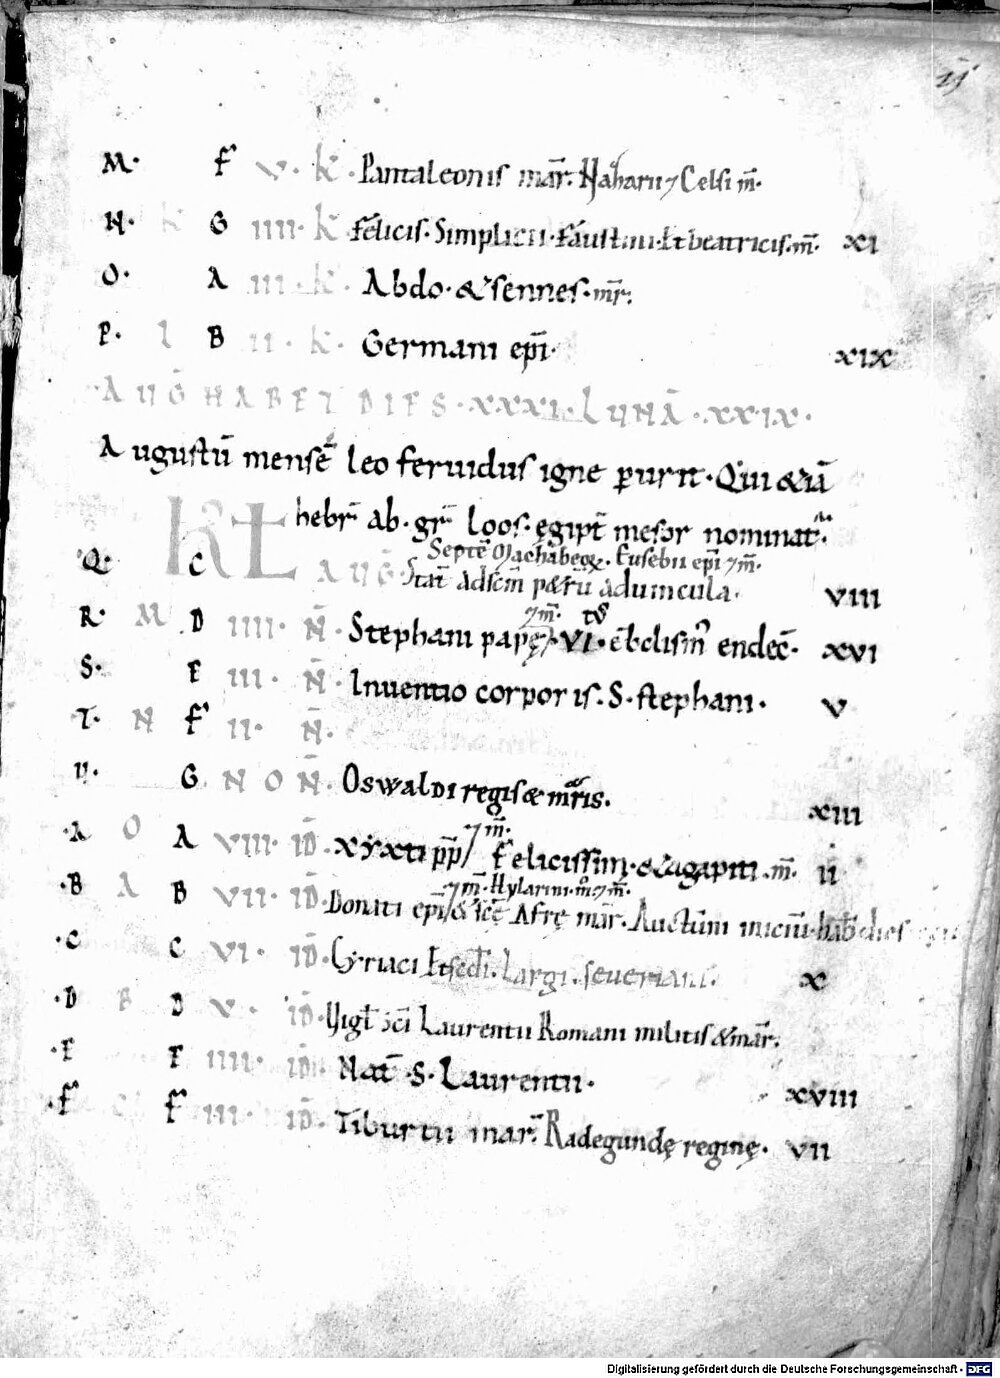 M· F v· K· Pantaleonis mār· Naharii 7 Celsi m̄·
N· K G IIII· K· felicis· Simplicii· faustini· Et beatricis· m̄· XI
O· A III· K· Abdo· & sennes· mr̄·
P· L B II· K· Germani ep̄i· XIX
AUḠ HABET DIES· XXXI· LUNĀ· XXIX·
Augustū mensē leo feruidus igne perurit· Qui &iā
hebr̄ ab· gr̄ loos· ęgipt̄ mesor nominat·
Septē Machabeoꝝ· Eusebii ep̄i 7 m̄·
Q· C KL AUḠ· Stat̄ adsc̄m petrū aduincula· VIII
7 m̄·
R· M D IIII· N̄· Stephani papę· VI· endec̄· XVI
S· E III· N̄· Inuentio corporis· S· stephani· V
T· N F II· N̄·
V· G NON̄· Oswaldi regis & mr̄is· XIII
7 m̄·
·A O A VIII· ID̄· Xyxti pp̄ / Felicissimi· & agapiti· m̄· II
7 m̄· Hylarini· m̄ 7 m̄·
·B A B VII· ID̄· Donati ep̄i / & sc̄ę Afrę mār· Auctūni iniciū· hab̄ dies
·C C VI· ID̄· Cyriaci Largi· seueriani· X
·D B D V· ID̄· Vigl̄ sc̄i Laurentii Romani militis & mār·
·E E IIII· ID̄· Nat̄ ·S· Laurentii· XVIII
·F C F III· ID̄· Tiburtii mar̄· Radegundę reginę· VII
Digitalisierung gefördert durch die Deutsche Forschungsgemeinschaft · DFG